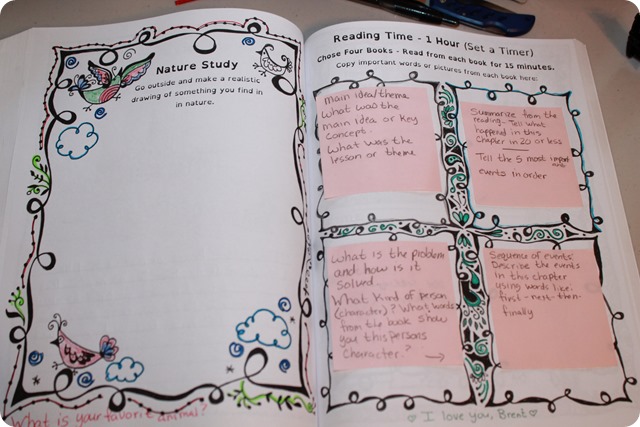 Nature Study
Go outside and make a realistic
drawing of something you find in
in nature.
What is your favorite animal?
Reading Time - 1 Hour (Set a Timer)
Chose Four Books - Read from each book for 15 minutes.
Copy important words or pictures from each book here:
Main idea/theme
What was the
main idea or key
concept.
What was the
lesson or theme
Summarize from the
reading. Tell what
happened in this
Chapter in 20 or less
Tell the 5 most important
events in order
What is the problem
and how is it
Solved
What kind of person
(character)? What words
from the book show
you this persons
Character?
Sequence of events
Describe the events
in this chapter
using words like:
first - next - then -
finally
I love you, Brent